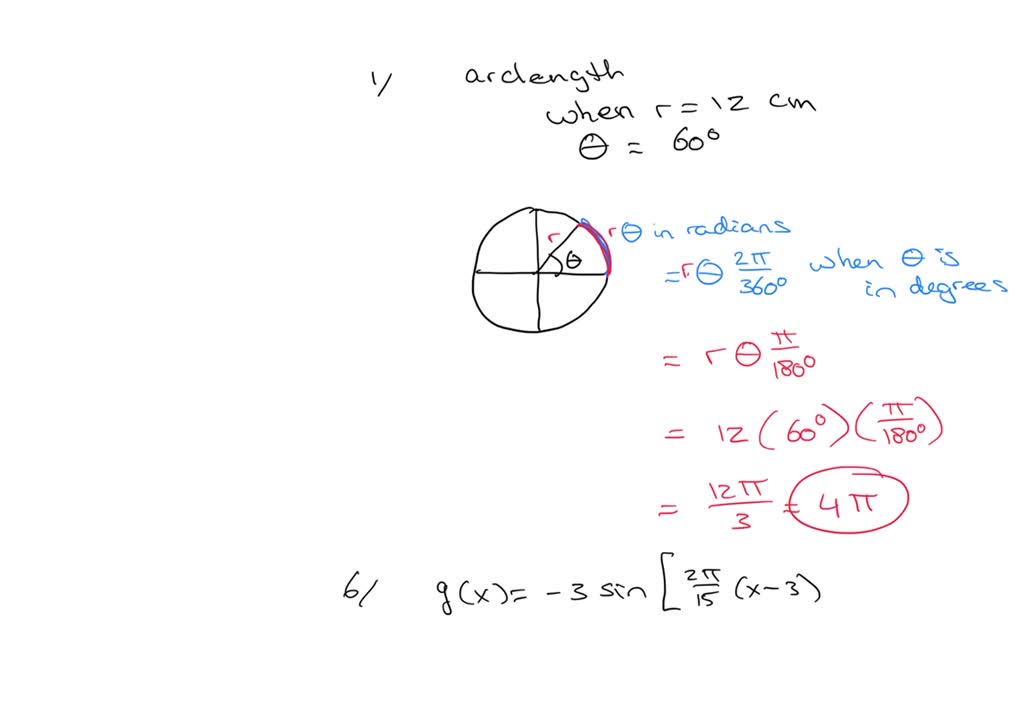 1/ arclength
when r = 12 cm
θ = 60°
r θ
rθ in radians
= rθ 2π/360° when θ is
in degrees
= r θ π/180°
= 12 (60°)(π/180°)
= 12π/3 = 4π
6/ g(x) = -3 sin [2π/15 (x-3)